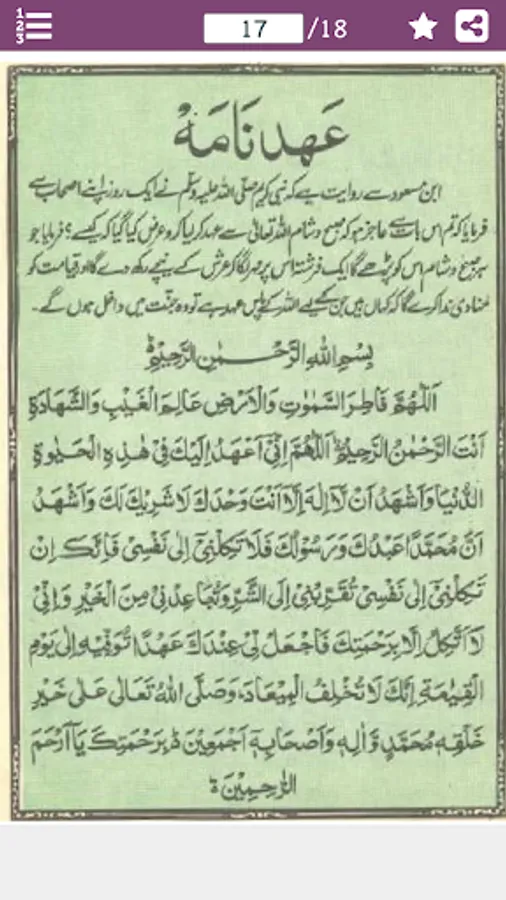 1
2
3
17 /18
عَهدنَامَہ
ابن مسعود سے روایت ہے کہ نبی کریم صلی اللہ علیہ وسلم نے ایک روز اپنے اصحاب سے
فرمایا کہ تم اس بات سے عاجز ہو کہ صبح و شام اللہ تعالیٰ سے عہد کر لیا کرو عرض کیا گیا کہ کیسے؟ فرمایا جو
ہر صبح و شام اس کو پڑھے گا ایک فرشتہ اس پر مہر لگا کر عرش کے نیچے رکھ دے گا اور قیامت کو
منادی ندا کرے گا کہ کہاں ہیں جن کے لیے اللہ کے پاس عہد ہے تو وہ جنت میں داخل ہوں گے۔
بِسْمِ اللهِ الرَّحْمٰنِ الرَّحِيْمِ
اَللّٰهُمَّ فَاطِرَ السَّمٰوٰتِ وَالْاَرْضِ عَالِمَ الْغَيْبِ وَالشَّهَادَةِ
اَنْتَ الرَّحْمٰنُ الرَّحِيْمُ اَللّٰهُمَّ اِنِّيْ اَعْهَدُ اِلَيْكَ فِيْ هٰذِهِ الْحَيٰوةِ
الدُّنْيَا وَاَشْهَدُ اَنْ لَّا اِلٰهَ اِلَّا اَنْتَ وَحْدَكَ لَا شَرِيْكَ لَكَ وَاَشْهَدُ
اَنَّ مُحَمَّدًا عَبْدُكَ وَرَسُوْلُكَ فَلَا تَكِلْنِيْ اِلٰى نَفْسِيْ فَاِنَّكَ اِنْ
تَكِلْنِيْ اِلٰى نَفْسِيْ تُقَرِّبْنِيْ اِلَى الشَّرِّ وَتُبَاعِدْنِيْ مِنَ الْخَيْرِ وَاِنِّيْ
لَا اَتَّكِلُ اِلَّا بِرَحْمَتِكَ فَاجْعَلْ لِّيْ عِنْدَكَ عَهْدًا تُوَفِّيْهِ اِلٰى يَوْمِ
الْقِيٰمَةِ اِنَّكَ لَا تُخْلِفُ الْمِيْعَادَ وَصَلَّى اللهُ تَعَالٰى عَلٰى خَيْرِ
خَلْقِهٖ مُحَمَّدٍ وَّاٰلِهٖ وَاَصْحَابِهٖ اَجْمَعِيْنَ بِرَحْمَتِكَ يَا اَرْحَمَ
الرّٰحِمِيْنَ